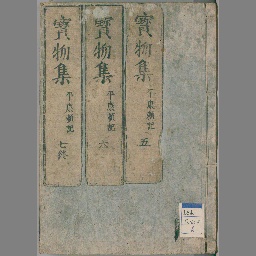 寳物集 平康頼記 五
寳物集 平康頼記 六
寳物集 平康頼記 七終